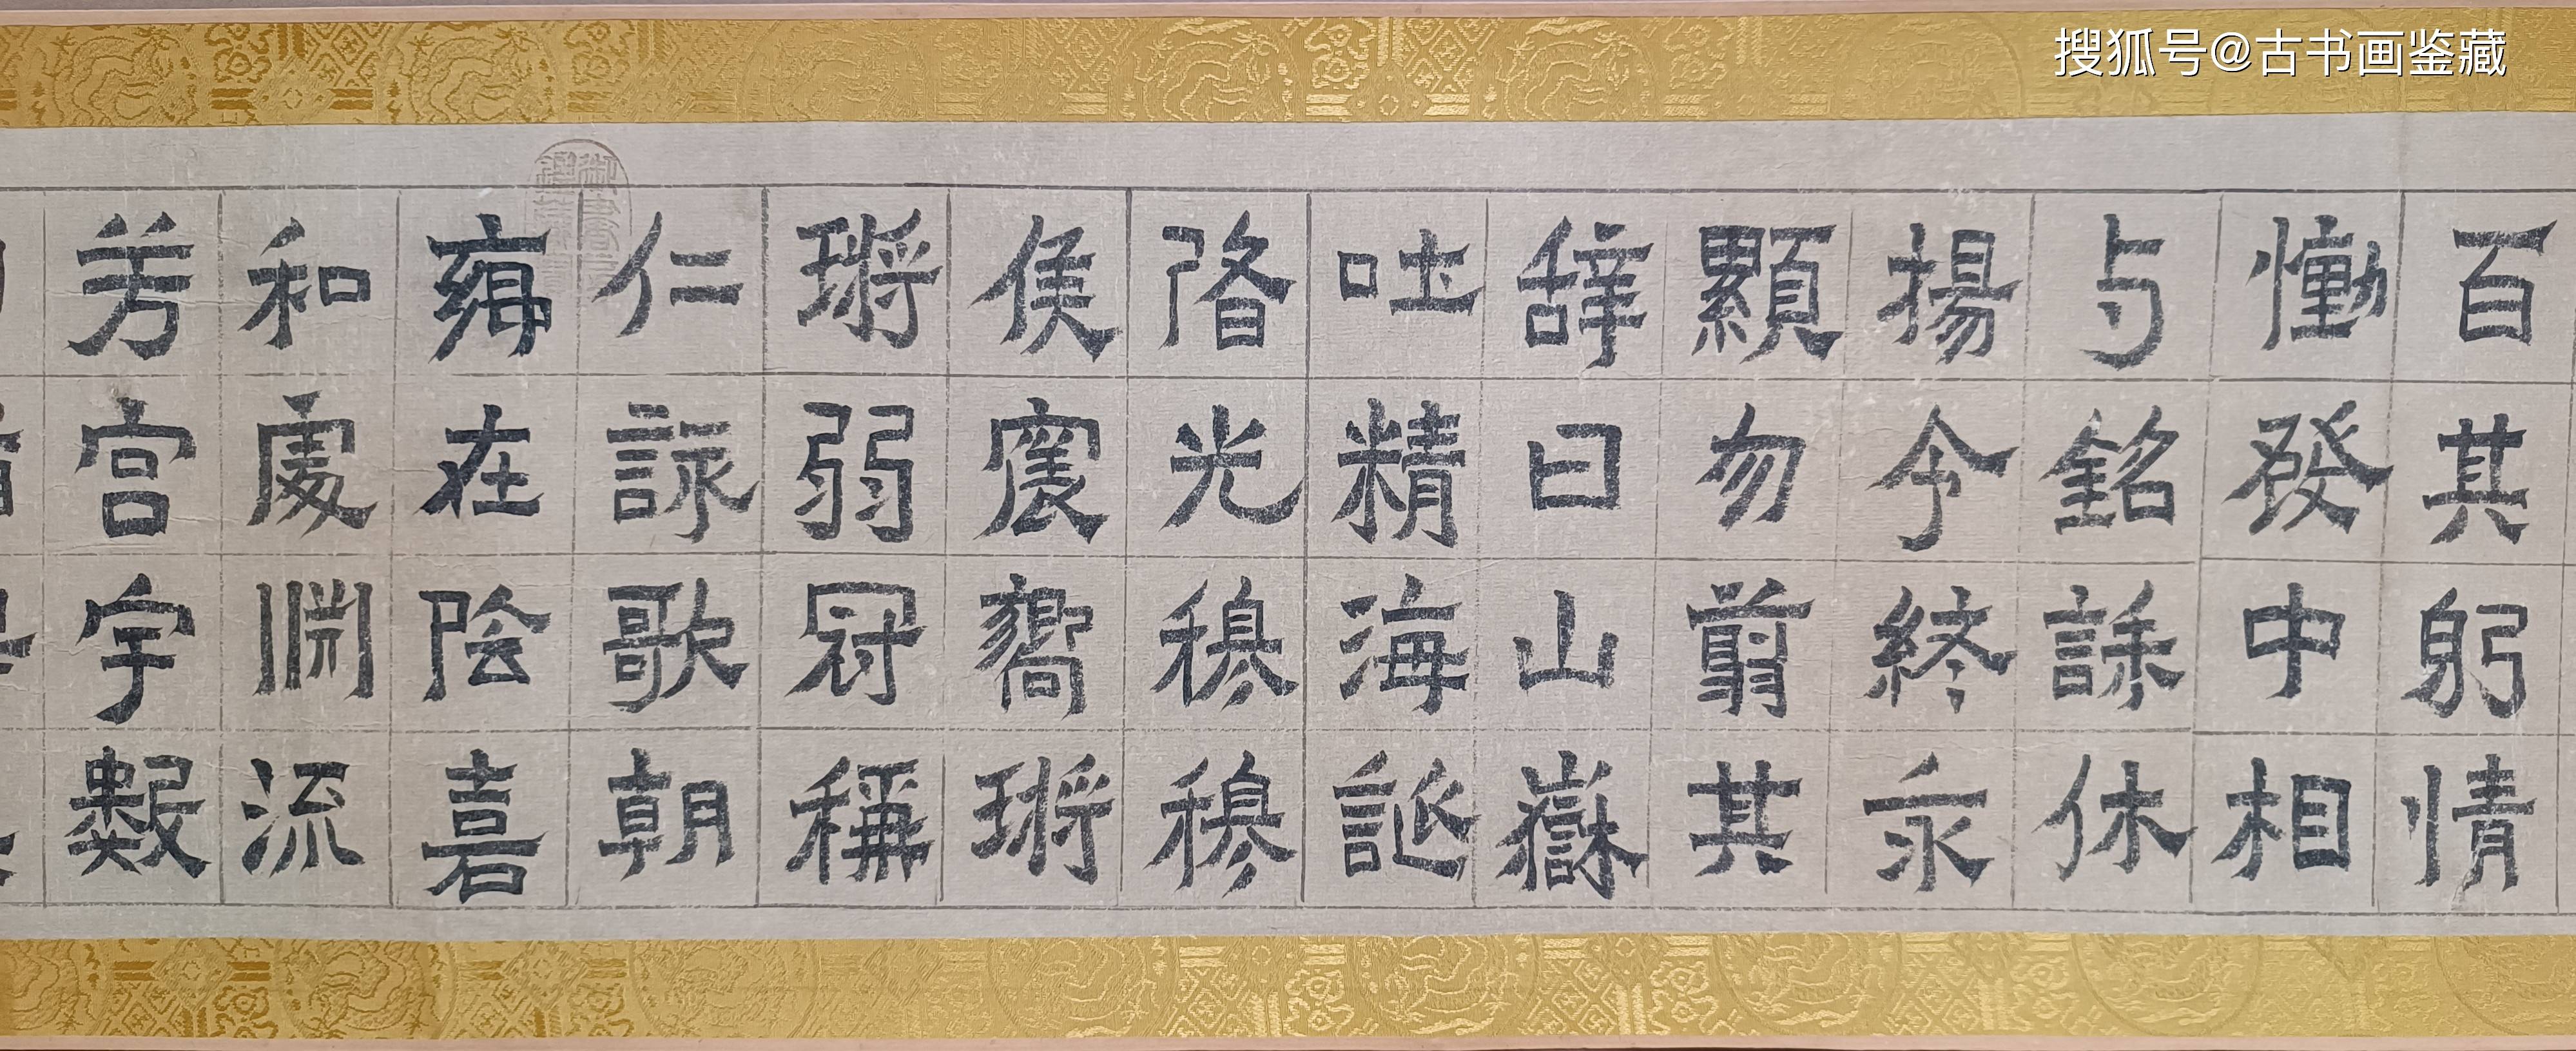 搜狐号@古书画鉴藏
百其躬情
慟發中相
与銘誄休
揚令終永
顯勿翦其
辞曰山嶽
吐精海誕
光穆穆
侯震嚮
弱冠稱
仁詠歌朝
雍在陰嘉
和處淵流
芳宫宇數